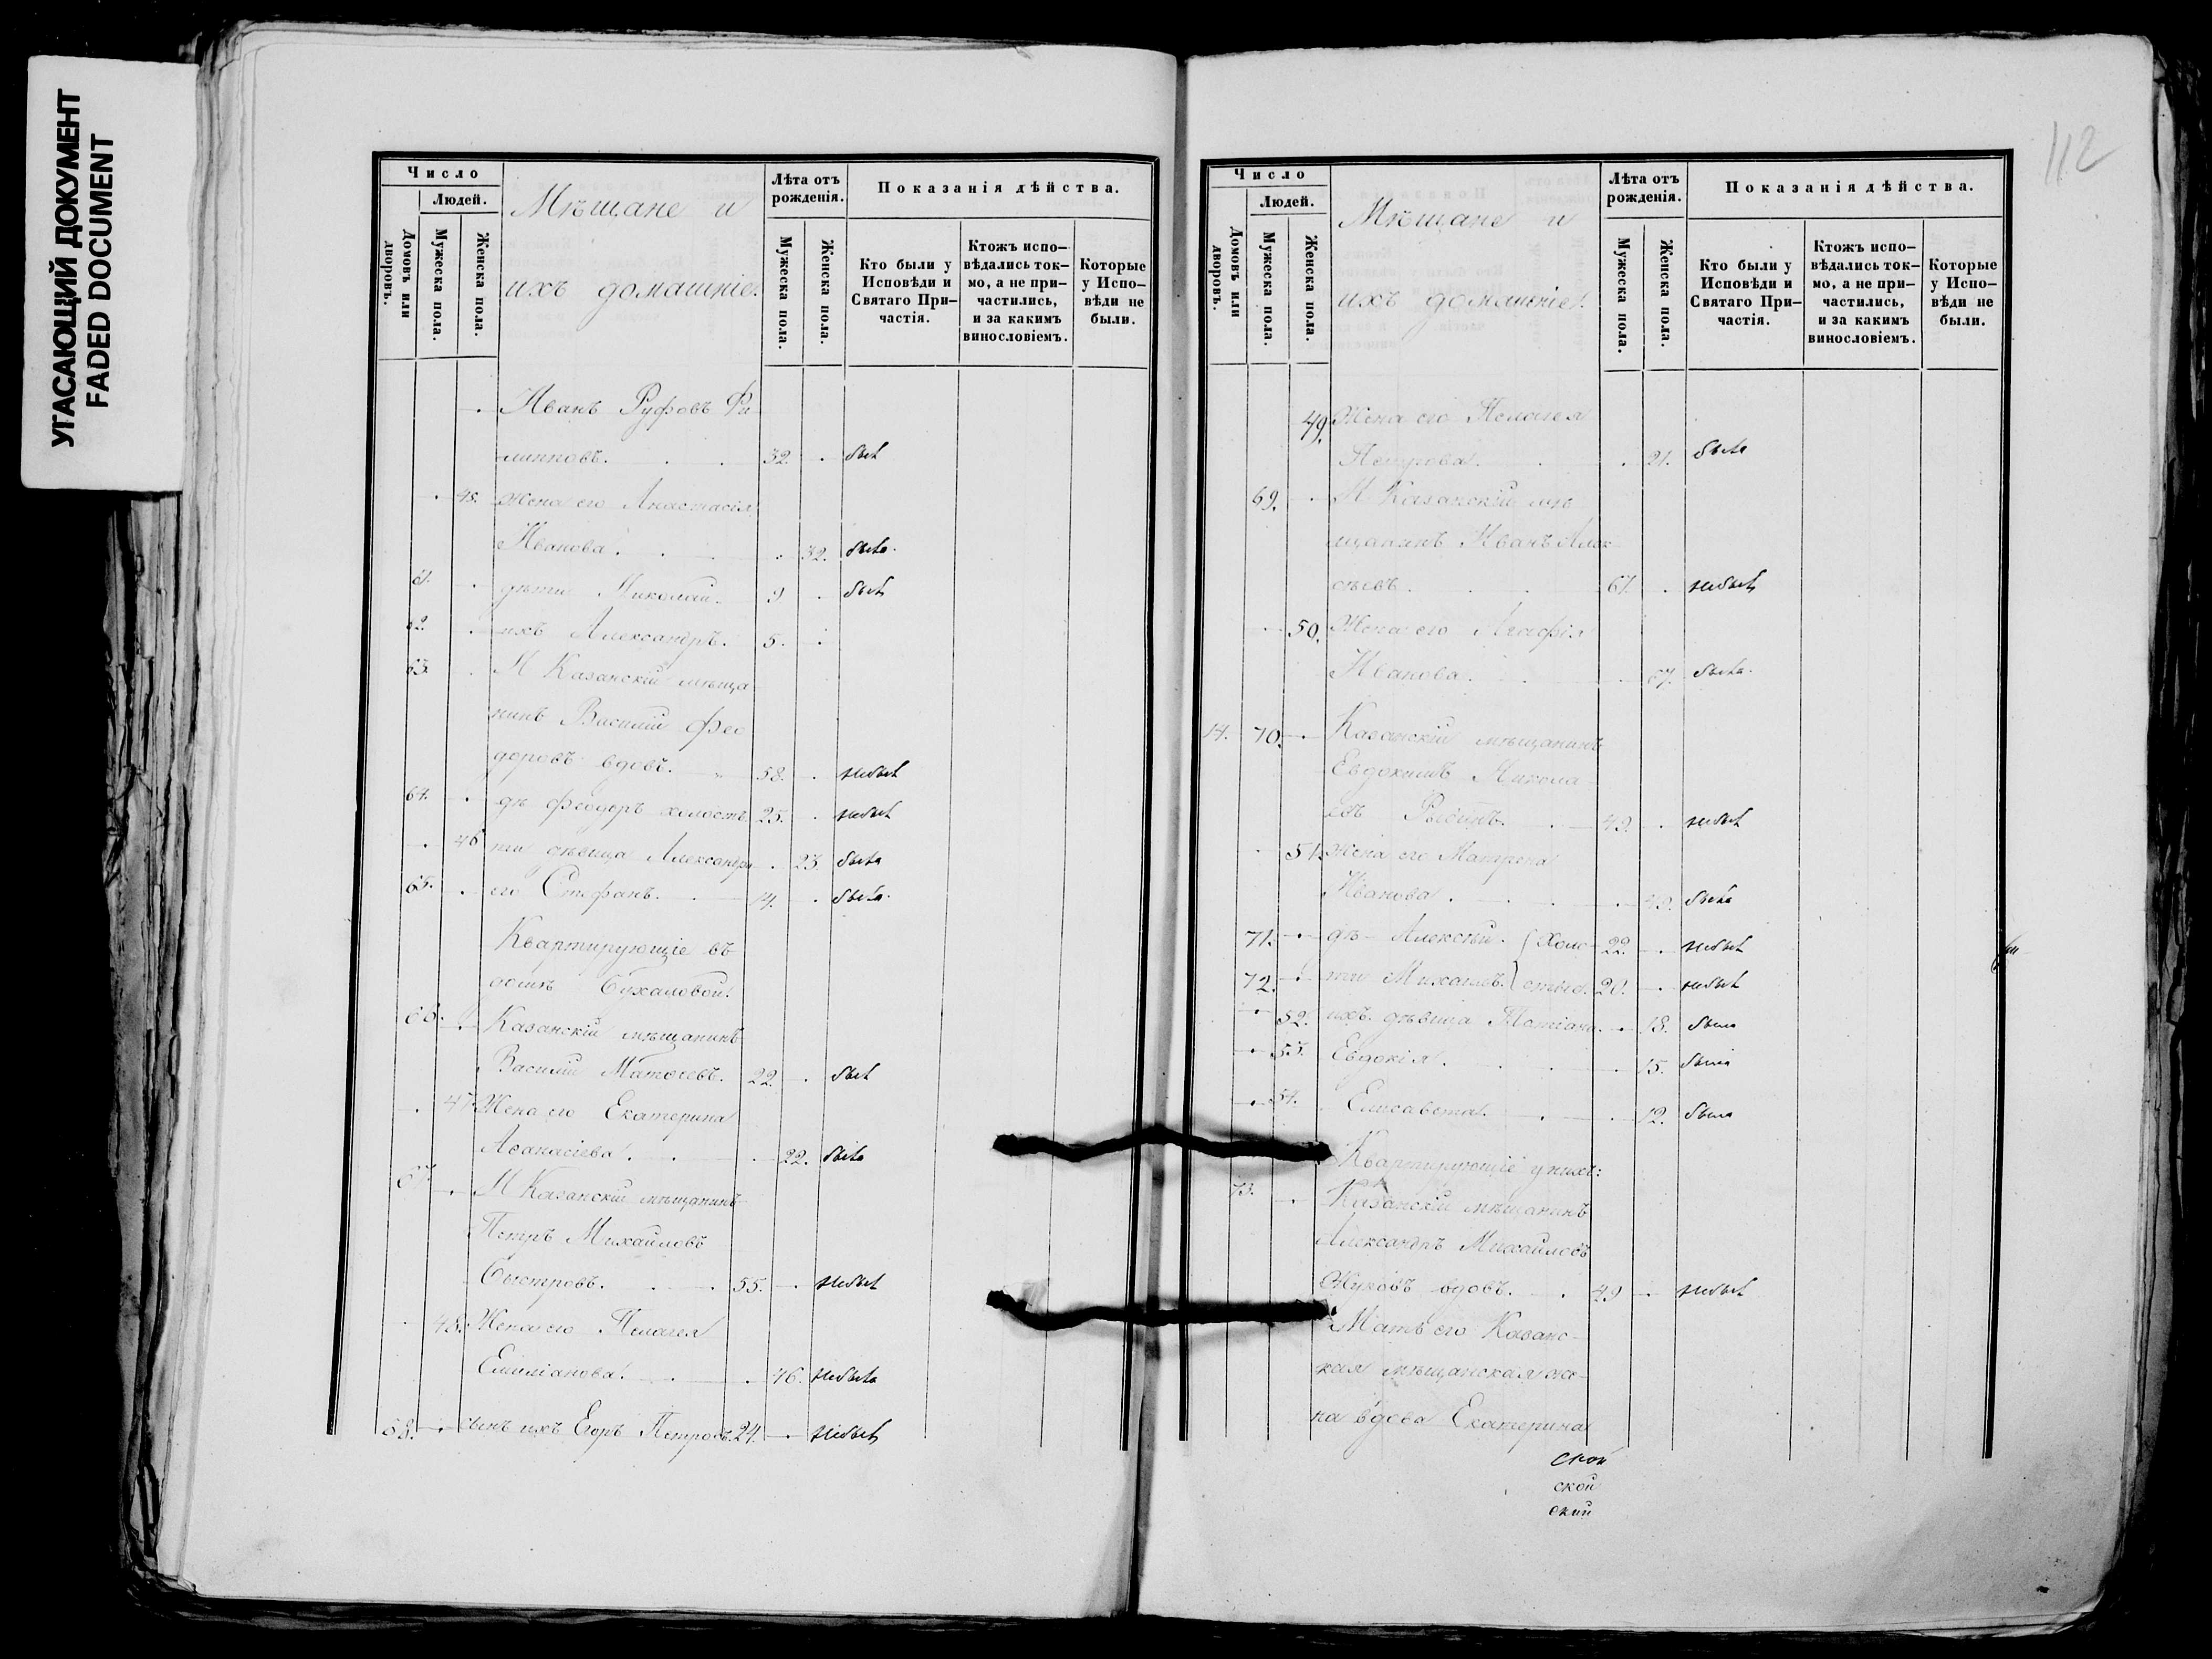 УГАСАЮЩИЙ ДОКУМЕНТ
FADED DOCUMENT
Число
Людей.
Домовъ или дворовъ.
Мужеска пола.
Женска пола.
Мѣщане и
ихъ домашніе.
Лѣта отъ рожденія.
Мужеска пола.
Женска пола.
Показанія дѣйства.
Кто были у Исповѣди и Святаго При-частія.
Ктожъ испо-вѣдались ток-мо, а не при-частились, и за какимъ винословіемъ.
Которые у Испо-вѣди не были.
Иванъ Руфовъ Фи
липповъ. 32. былъ
45. Жена его Анастасія
Иванова. 32. была
61. дѣти Николай. 9 былъ
62. ихъ Александръ. 5.
63. И Казанскій мѣща
нинъ Василій Фео
доровъ вдовъ. 58. небылъ
64. дѣ Феодоръ холостъ. 25. небылъ
46 ти дѣвица Александра 23 была
65. его Стефанъ. 14. былъ
Квартирующіе въ
домѣ Бухаловой.
66. Казанскій мѣщанинъ
Василій Матвеевъ. 22. былъ
47. Жена его Екатерина
Аѳанасіева. 22. была
67. И Казанскій мѣщанинъ
Петръ Михайловъ
Быстровъ. 55. небылъ
48. Жена его Пелагея
Емиліанова. 46. небыла
68. сынъ ихъ Егоръ Петровъ. 24. небылъ
112
Число
Людей.
Домовъ или дворовъ.
Мужеска пола.
Женска пола.
Мѣщане и
ихъ домашніе.
Лѣта отъ рожденія.
Мужеска пола.
Женска пола.
Показанія дѣйства.
Кто были у Исповѣди и Святаго При-частія.
Ктожъ испо-вѣдались ток-мо, а не при-частились, и за какимъ винословіемъ.
Которые у Испо-вѣди не были.
49. Жена его Пелагея
Петрова. 21. была
69. И Казанскій мѣ
щанинъ Иванъ Алек
сѣевъ. 67. небылъ
50. Жена его Агафія
Иванова. 67. была
14. 70. Казанскій мѣщанинъ
Евдокимъ Никола
евъ 49. небылъ
51. Жена его Матрона
Иванова. была
71. дѣ- Алексѣй. (Холо- 22. небылъ
72. ти Михаилъ. ) стые. 20. небылъ
52. ихъ дѣвица Татіана. 18. была
53. Евдокія. 15. была
54. Елисавета. 12. была
Квартирующіе у нихъ:
73. Казанскій мѣщанинъ
Александръ Михайловъ
Жуковъ вдовъ. 49 небылъ
Мать его Казанс-
кая мѣщанская же-
на вдова Екатерина
ской
ской
ский